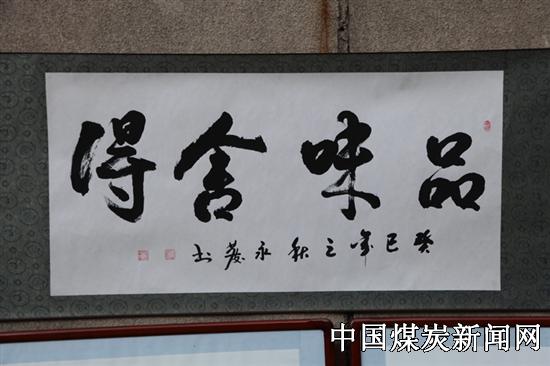 品味舍得
癸巳年之秋永發书
中国煤炭新闻网